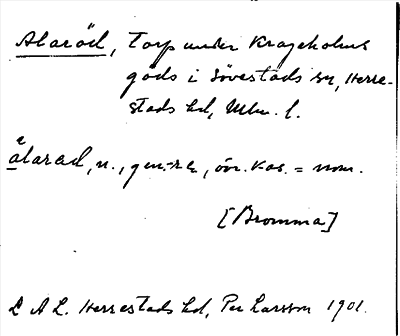 Alaröd, Torp under Krageholms
gods i Sövestads sn, Herre-
stads hd, Mlm. l.
ålarad, n., gen. -rs, övr. kas. = nom.
[Bromma]
LAL. Herrestads hd, Per Larsson 1901.